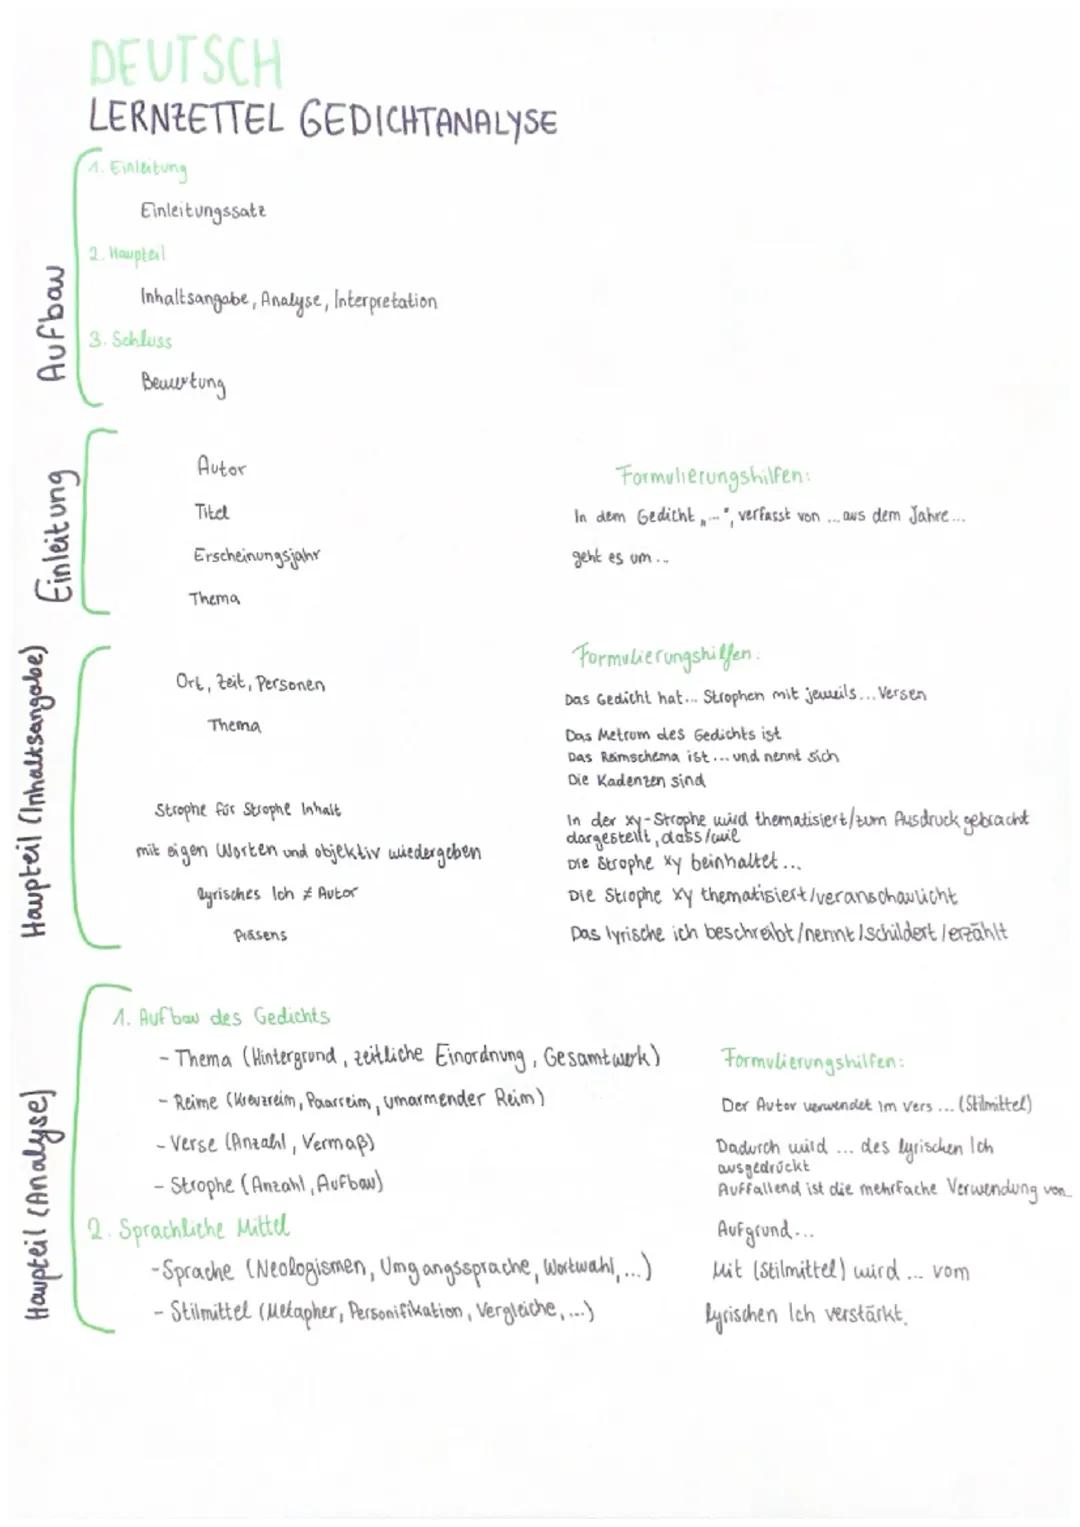 DEUTSCH
LERNZETTEL GEDICHTANALYSE
Aufbau
1. Einleitung
Einleitungssatz
2. Haupteil
Inhaltsangabe, Analyse, Interpretation
3. Schluss
Bewertung
Einleitung
Autor
Titel
Erscheinungsjahr
Thema
Formulierungshilfen:
In dem Gedicht „...", verfasst von ... aus dem Jahre...
geht es um...
Haupteil (Inhaltsangabe)
Ort, Zeit, Personen
Thema
Strophe für Strophe Inhalt
mit eigen Worten und objektiv wiedergeben
lyrisches Ich ≠ Autor
Präsens
Formulierungshilfen:
Das Gedicht hat... Strophen mit jeweils... Versen
Das Metrum des Gedichts ist
Das Reimschema ist... und nennt sich
Die Kadenzen sind
In der xy-Strophe wird thematisiert/zum Ausdruck gebracht
dargestellt, dass/wie
Die Strophe xy beinhaltet...
Die Strophe xy thematisiert/veranschaulicht
Das lyrische ich beschreibt/nennt/schildert/erzählt
Haupteil (Analyse)
1. Aufbau des Gedichts
- Thema (Hintergrund, zeitliche Einordnung, Gesamtwerk)
- Reime (Kreuzreim, Paarreim, umarmender Reim)
- Verse (Anzahl, Vermaß)
- Strophe (Anzahl, Aufbau)
2. Sprachliche Mittel
- Sprache (Neologismen, Umgangssprache, Wortwahl,...)
- Stilmittel (Metapher, Personifikation, Vergleiche,...)
Formulierungshilfen:
Der Autor verwendet im Vers ... (Stilmittel)
Dadurch wird ... des lyrischen Ich
ausgedrückt
Auffallend ist die mehrfache Verwendung von
Aufgrund...
Mit (Stilmittel) wird ... vom
lyrischen Ich verstärkt.